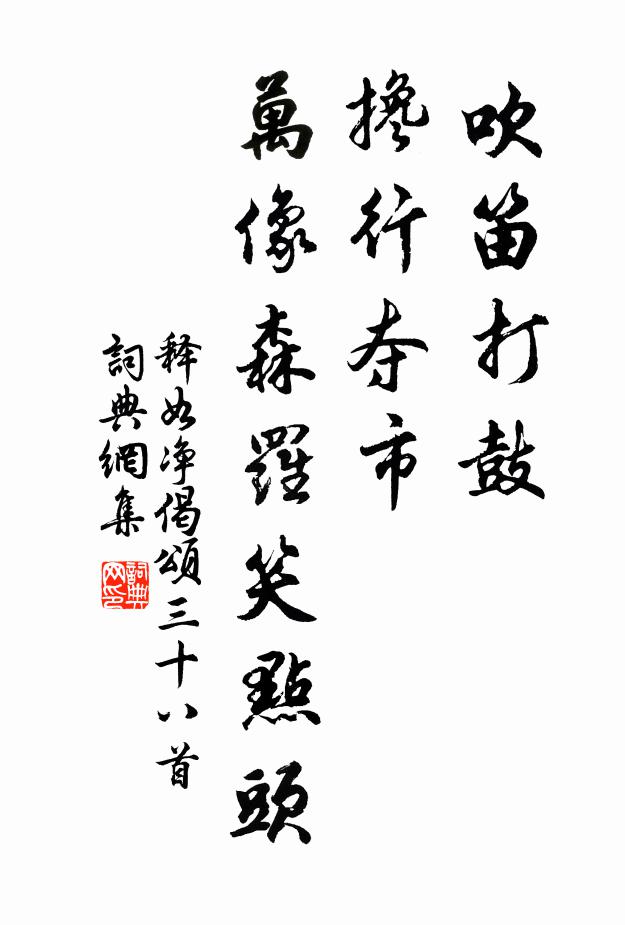 吹笛打鼓
搀行夺市
萬像森羅笑點頭
释如净偈頌三十八首
詞典網集
詞典网印